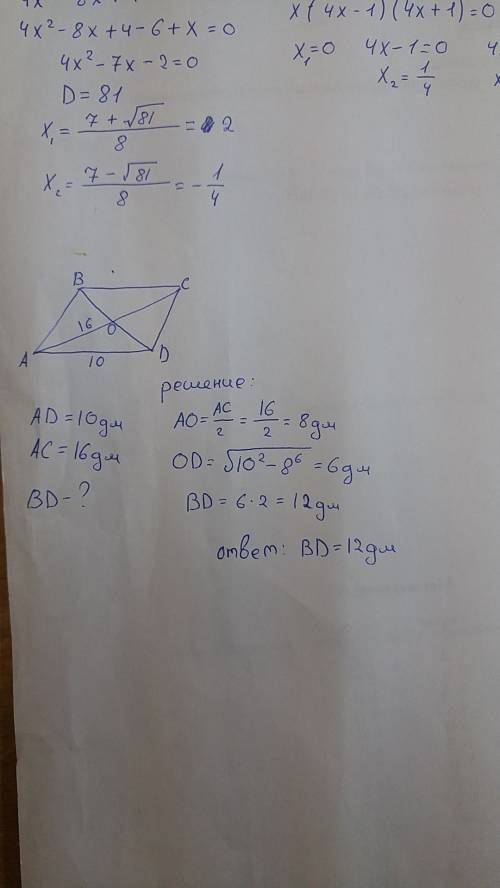 4x² - 8x + 4 - 6 + x = 0
4x² - 7x - 2 = 0
D = 81
x₁ = (7 + √81)/8 = 2
x₂ = (7 - √81)/8 = -1/4
x(4x-1)(4x+1) = 0
x₁ = 0 4x - 1 = 0 4
x₂ = 1/4 x
B C
16 O
A 10 D
решение:
AD = 10дм
AC = 16дм
BD - ?
AO = AC/2 = 16/2 = 8дм
OD = √10² - 8⁶ = 6дм
BD = 6·2 = 12дм
ответ: BD = 12дм